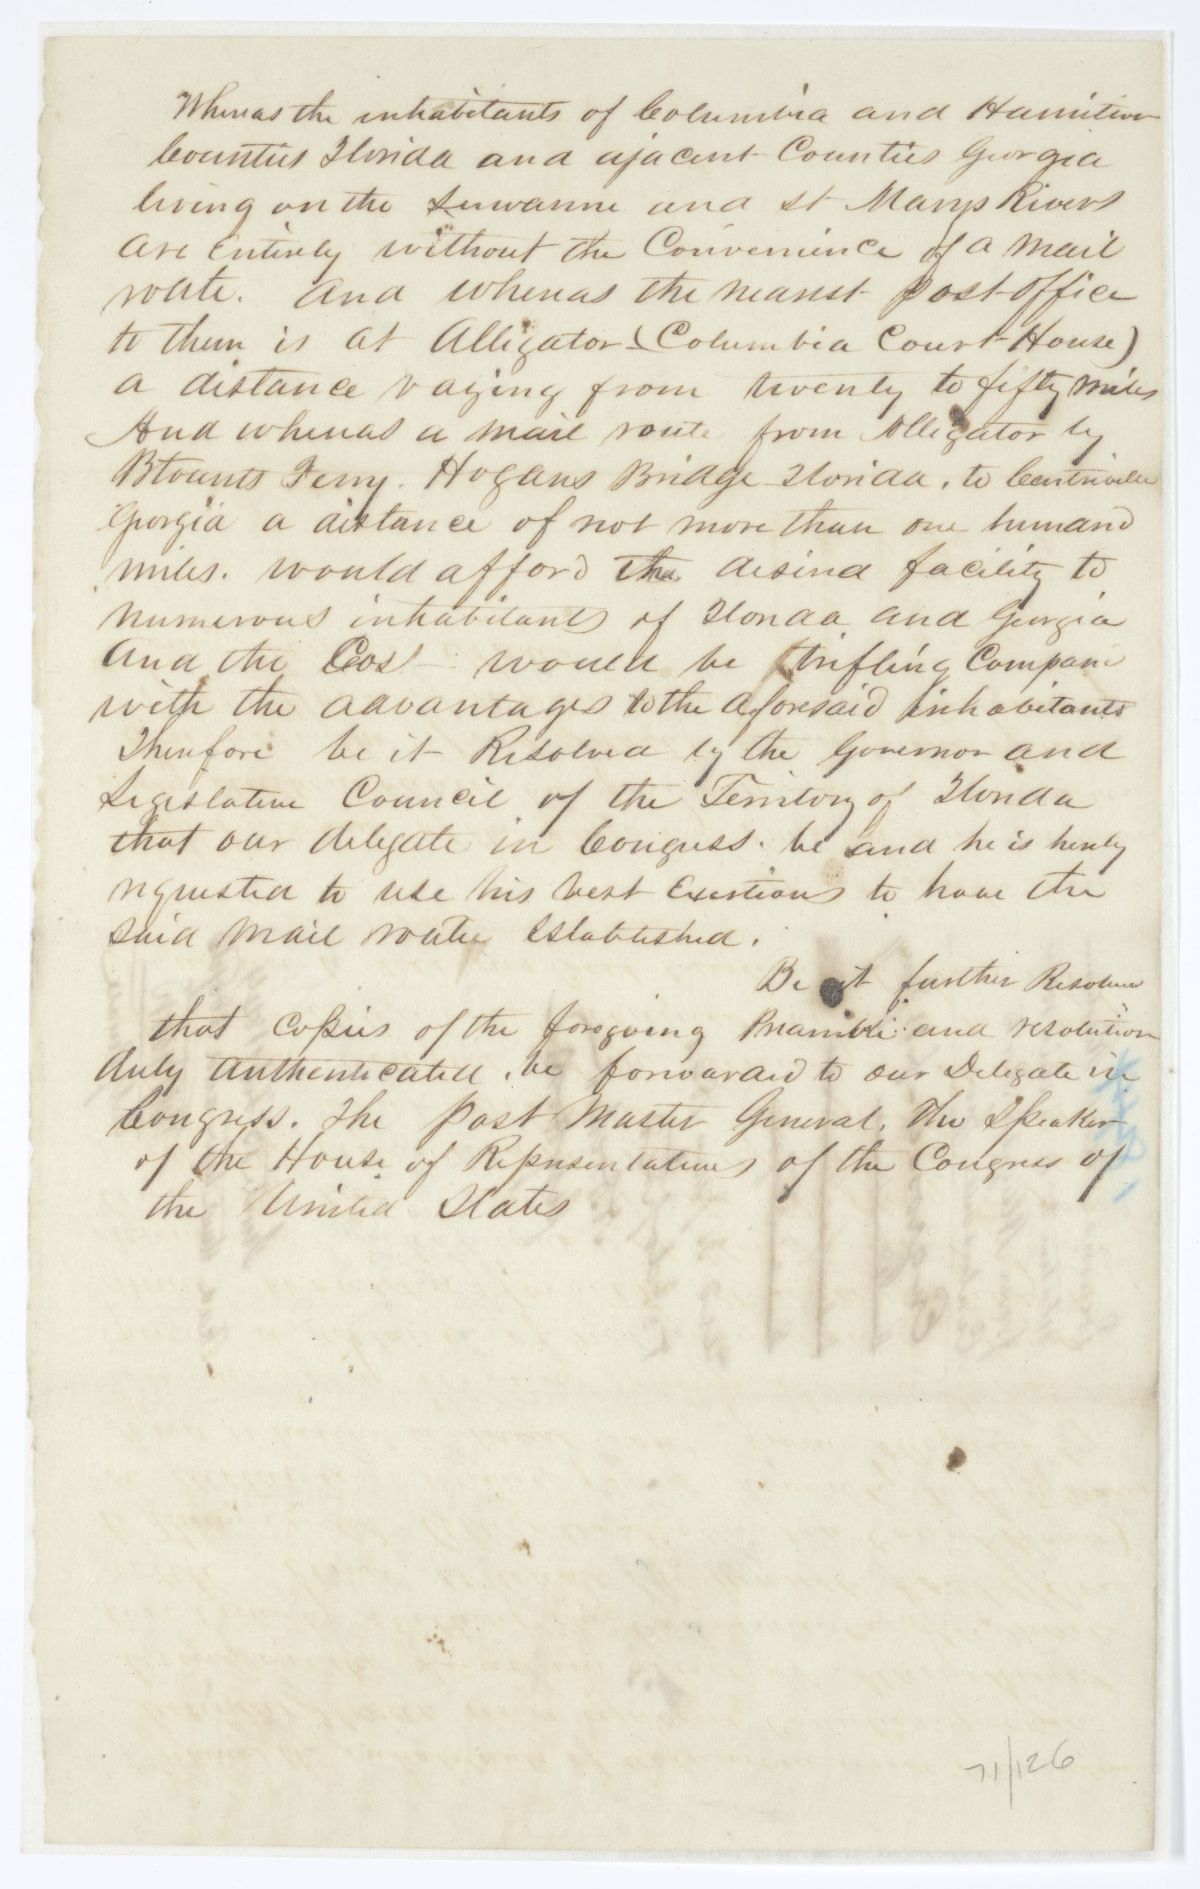 Whereas the inhabitants of Columbia and Hamilton
Counties Florida and ajacent Counties Georgia
living on the Suwanne and St Marys Rivers
are Entirely without the Convenience of a Mail
route. And whereas the nearest post office
to them is at Alligator (Columbia Court House)
a distance vaying from twenty to fifty miles
And whereas a mail route from Alligator by
Blounts Ferry. Hogans Bridge Florida, to Centreville
Georgia a distance of not more than one hundred
miles. would afford the desired facility to
numerous inhabitants of Florida and Georgia
And the Cost would be trifling Compare
with the advantages to the aforesaid inhabitants
Therefore be it Resolved by the Governor and
Legislative Council of the Territory of Florida
that our delegate in Congress. be and he is hereby
requested to use his best Exertions to have the
said Mail route established.
Be it further Resolved
that Copies of the foregoing Preamble and resolution
duly authenticated, be forwared to our Delegate in
Congress. The Post Master General, The Speaker
of the House of Representatives of the Congress of
the United States
71/126